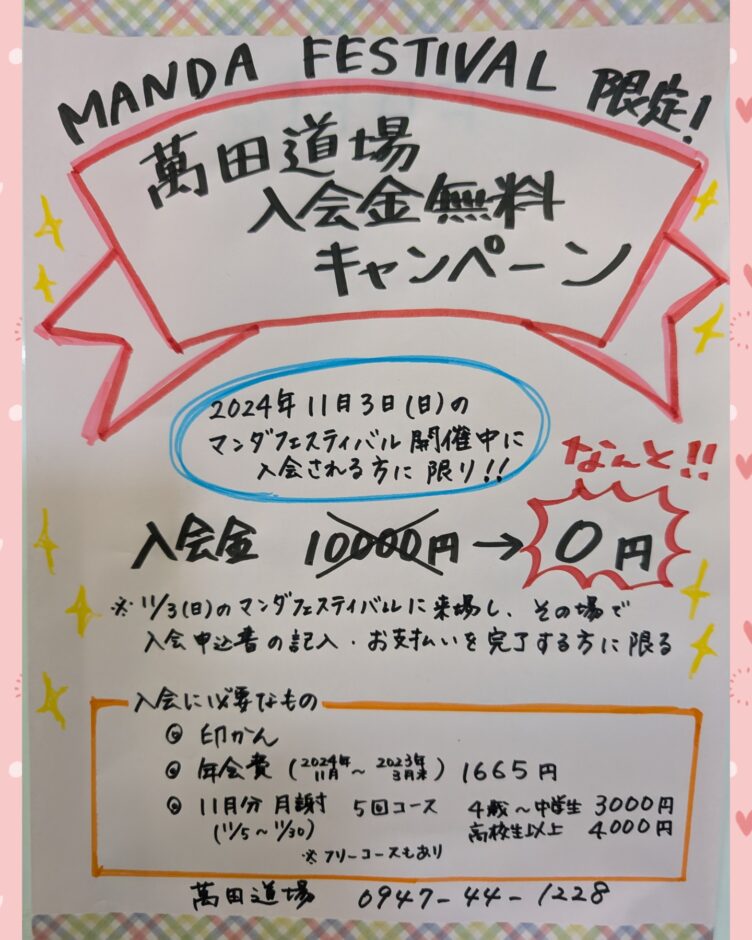 MANDA FESTIVAL 限定!
萬田道場
入会金無料
キャンペーン
2024年11月3日(日)の
マンダフェスティバル開催中に
入会される方に限り!!
なんと!!
入会金 10000円→0円
※11/3(日)のマンダフェスティバルに来場し、その場で
入会申込書の記入・お支払いを完了する方に限る
入会に必要なもの
◎ 印かん
◎ 年会費 (2024年11月~2023年3月末) 1665円
◎ 11月分 月謝 5回コース 4歳~中学生 3000円
(11/5~11/30) 高校生以上 4000円
※フリーコースもあり
萬田道場 0947-44-1228